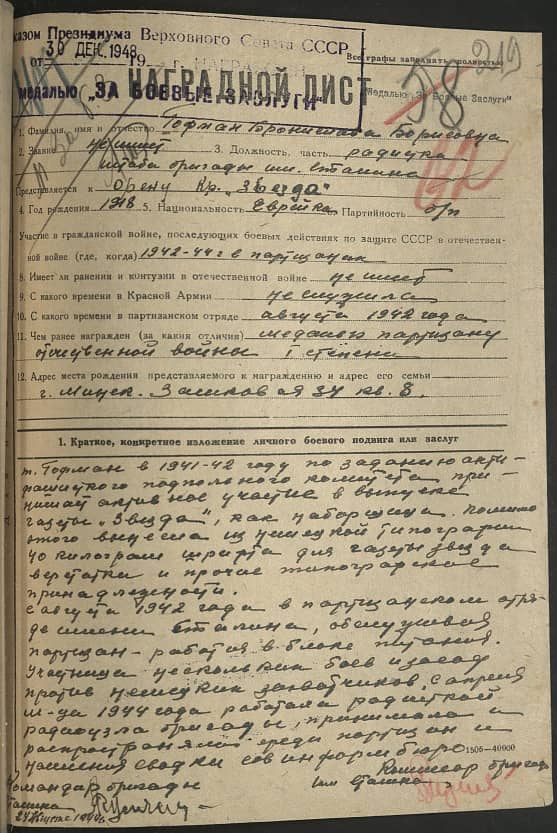 Указом Президиума Верховного Совета СССР
от 30 ДЕК. 1948
Все графы заполнять полностью
219
58
НАГРАДНОЙ ЛИСТ
Медалью „За Боевые Заслуги"
медалью „ЗА БОЕВЫЕ ЗАСЛУГИ"
1. Фамилия, имя и отчество Гофман Бронислава Борисовна
2. Звание не имеет 3. Должность, часть радистка
штаба бригады им. Сталина
Представляется к Ордену Кр. „Звезда"
4. Год рождения 1918 5. Национальность Еврейка Партийность б/п
Участие в гражданской войне, последующих боевых действиях по защите СССР в отечествен-
ной войне (где, когда) 1942-44 г в партизанах
8. Имеет ли ранения и контузии в отечественной войне не имеет
9. С какого времени в Красной Армии не служила
10. С какого времени в партизанском отряде августа 1942 года
11. Чем ранее награжден (за какия отличия) медалью партизану
отечественной войны I степени
12. Адрес места рождения представляемого к награждению и адрес его семьи
г. Минск. 34 кв. 8.
1. Краткое, конкретное изложение личного боевого подвига или заслуг
т. Гофман в 1941-42 году по заданию анти-
фашисткого подпольного комитета при-
нимает активное участие в выпуске
газеты „Звезда", как наборщица. Помимо
этого вынесла из немецкой типографии
40 килограм шрифта для газеты звезда
верстатки и прочие типографское
принадлежности.
С августа 1942 года в партизанском отря-
де имени Сталина, обслуживая
партизан - работая в блоке питания.
Участница нескольких боев и засад
против немецких захватчиков, с апреля
м-ца 1944 года работала радисткой
радиоузла бригады, принимала и
распространяла среди партизан и
населения сводки совинформбюро
1505-40000
Командир бригады
Комиссар бригады
им Сталина
Сталина